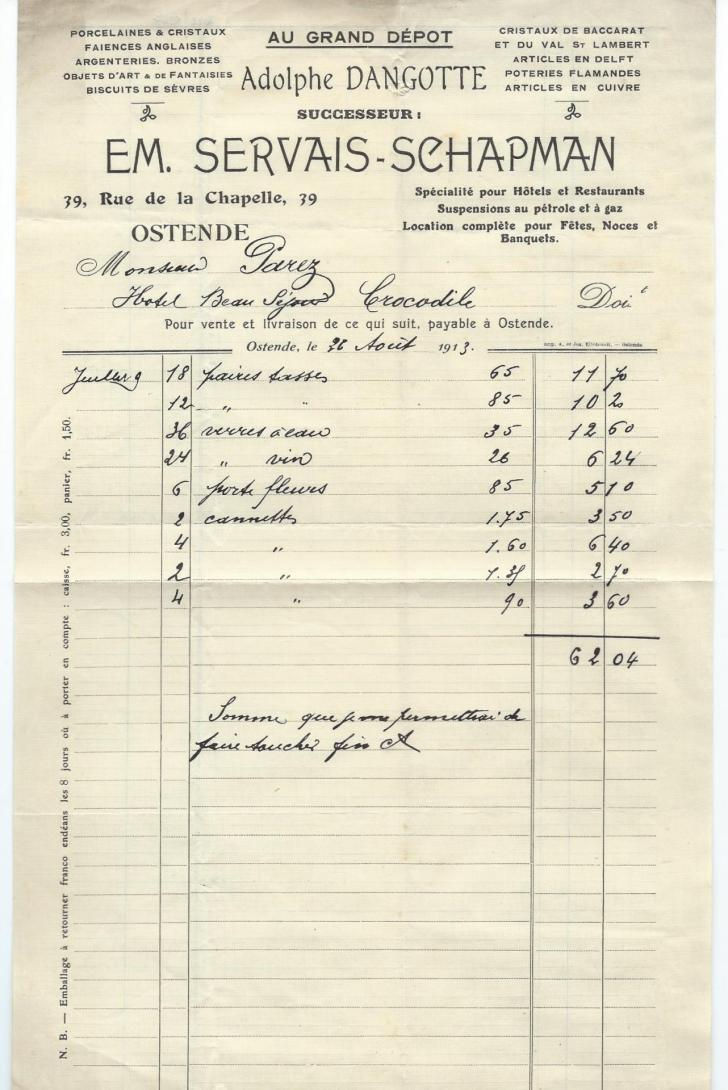 PORCELAINES & CRISTAUX
FAIENCES ANGLAISES
ARGENTERIES. BRONZES
OBJETS D'ART & DE FANTAISIES
BISCUITS DE SÈVRES
AU GRAND DÉPOT
Adolphe DANGOTTE
SUCCESSEUR :
CRISTAUX DE BACCARAT
ET DU VAL ST LAMBERT
ARTICLES EN DELFT
POTERIES FLAMANDES
ARTICLES EN CUIVRE
EM. SERVAIS-SCHAPMAN
39, Rue de la Chapelle, 39
OSTENDE
Spécialité pour Hôtels et Restaurants
Suspensions au pétrole et à gaz
Location complète pour Fêtes, Noces et
Banquets.
Monsieur Parez
Hotel Beau Séjour Crocodile Doit
Pour vente et livraison de ce qui suit, payable à Ostende.
Ostende, le 26 Août 1913.
Juillet 9 18 paires tasses 65 11 70
12 " " 85 10 2
36 verres à eau 35 12 60
24 " vin 26 6 24
6 porte fleurs 85 5 10
2 cannettes 1.75 3 50
4 " 1.60 6 40
2 " 1.35 2 70
4 " 90 3 60
62 04
Somme que je me permettrai de
faire toucher fin
N. B. — Emballage à retourner franco endéans les 8 jours où à porter en compte : caisse, fr. 3,00, panier, fr. 1,50.